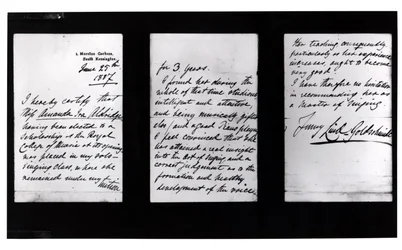 1, Moreton Gardens,
South Kensington.
June 25th
1887
I hereby certify that
Miss Amanda Ira Aldridge
having been elected to a
Scholarship at the Royal
College of Music at its opening
was placed in my solo-
singing class, where she
remained under my tuition
for 3 Years.
I found her during the
whole of that time studious,
intelligent and attentive,
and being musically gifted
also, and a good Piano player
I feel convinced that She
has attained a real insight
into the Art of Singing, and a
correct judgement as to the
formation and healthy
development of the voice.
Her teaching consequently
particularly as her experience
increases, ought to become
very good.
I have therefore no hesitation
in recommending her as
a Master of Singing.
Jenny Lind-Goldschmidt